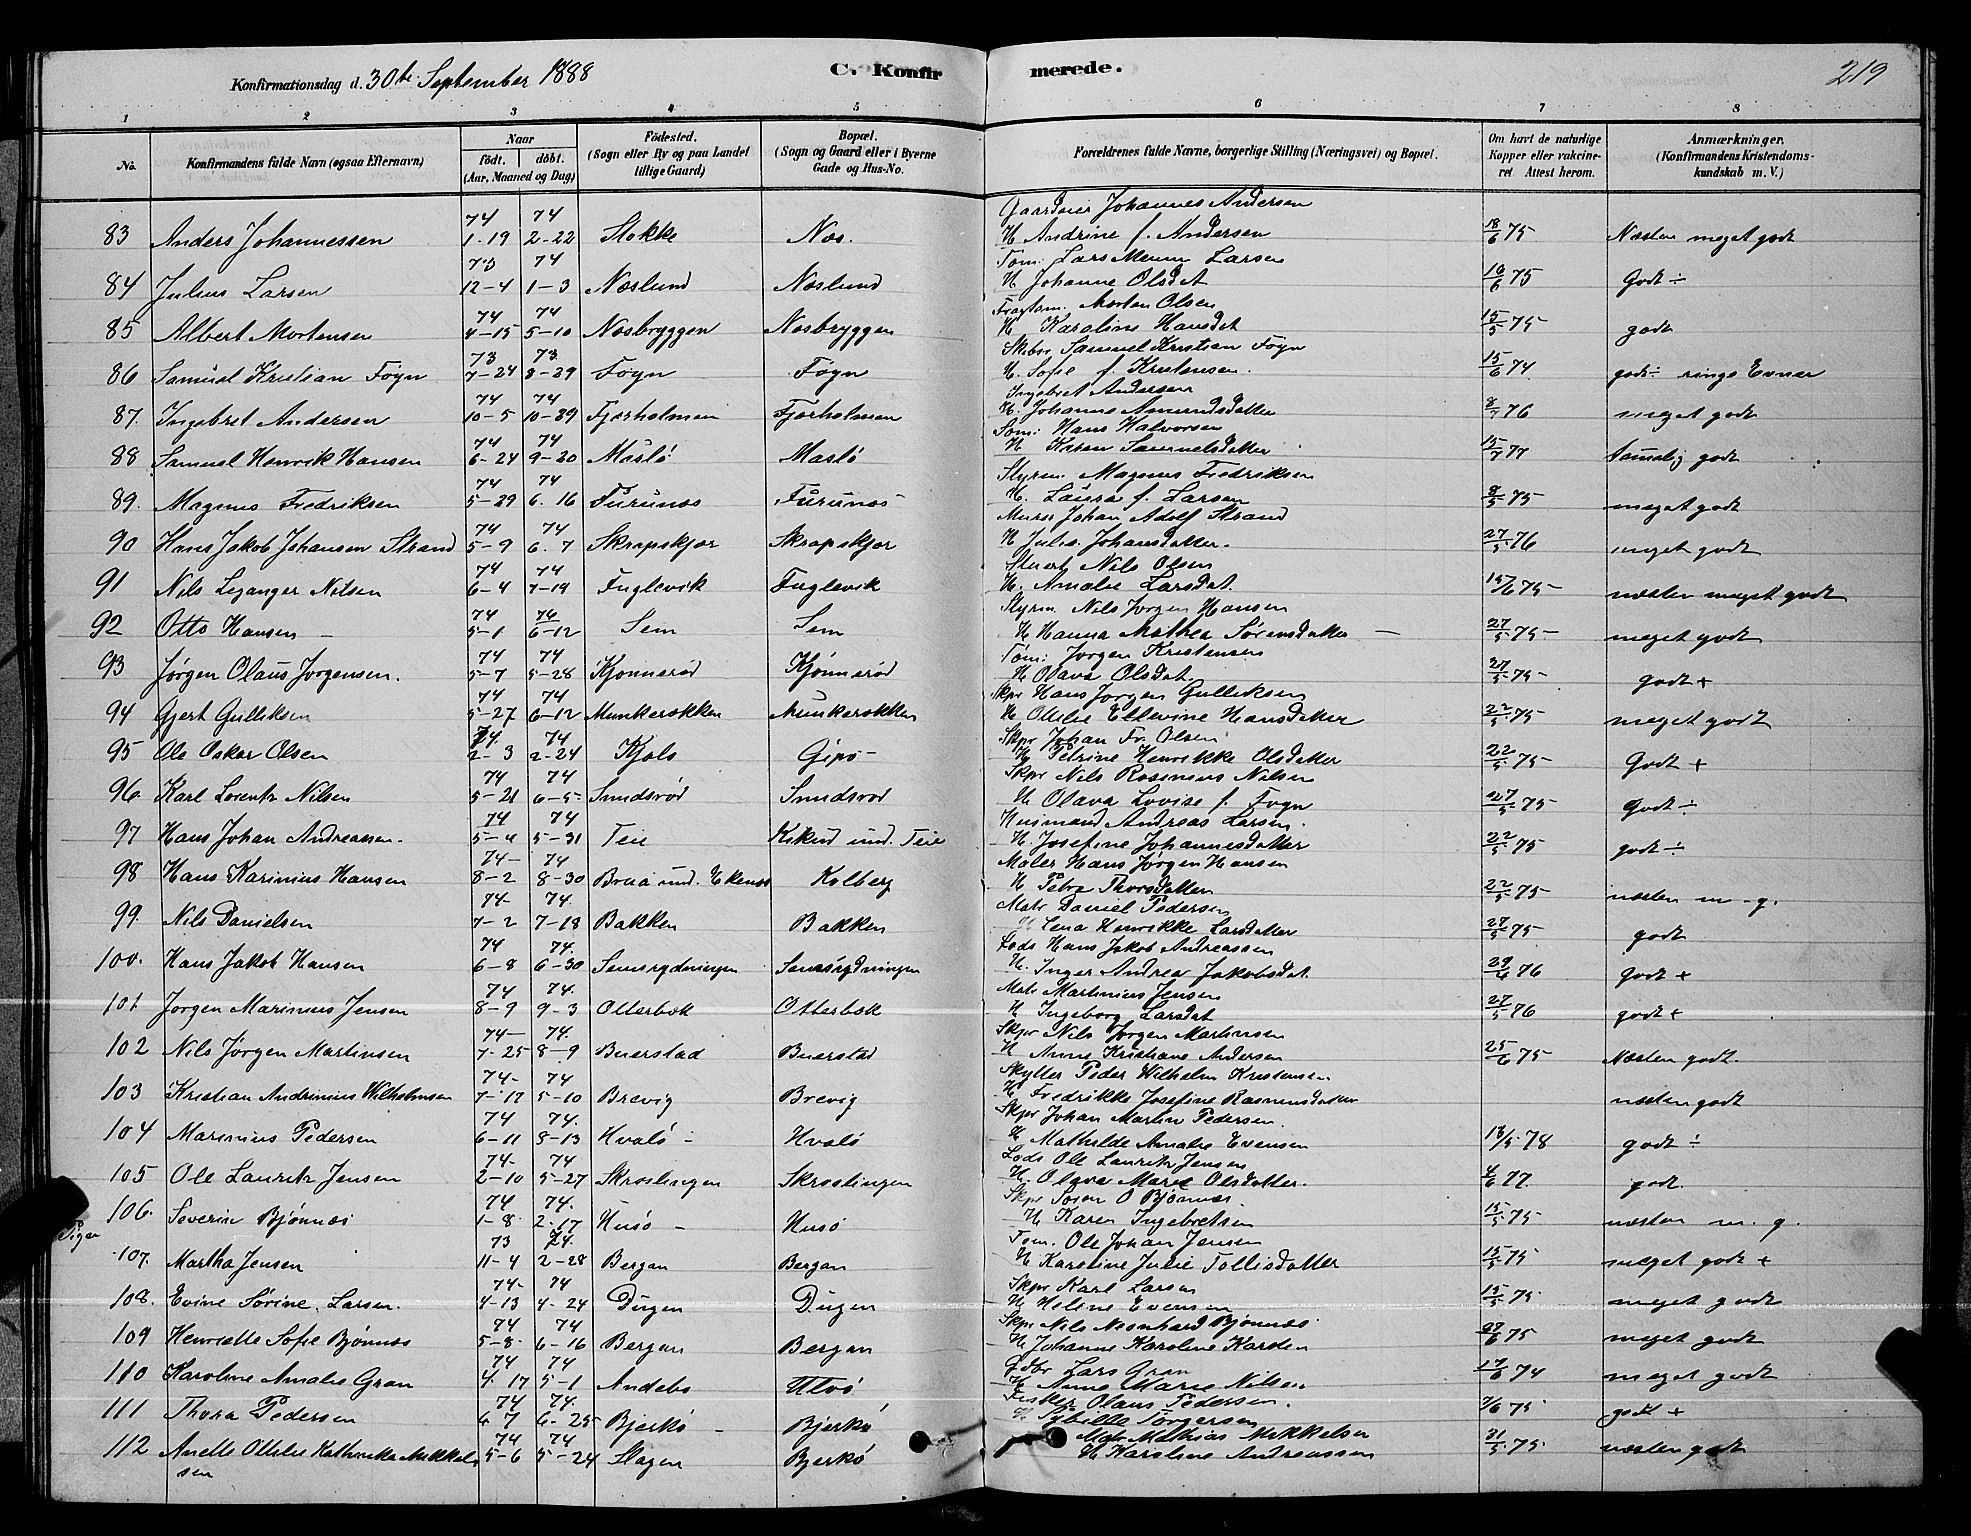 Konfirmationsdag d. 30te September 1888 C. Konfirmerede. 219
1 2 3 4 5 6 7 8
No. Konfirmandens fulde Navn (ogsaa Efternavn) Naar født. døbt. (Aar, Maaned og Dag) Fødested. (Sogn eller By og paa Landet tillige Gaard) Bopæl. (Sogn og Gaard eller i Byerne Gade og Hus-No. Forældrenes fulde Navne, borgerlige Stilling (Næringsvei) og Bopæl. Om havt de naturlige Kopper eller vakcineret. Attest herom. Anmærkninger. (Konfirmandens Kristendomskundskab m. V.)
74 74 Johannes Andersen
83 Anders Johannessen 1-19 2-22 Stokke Nes. H Andrine f. Andersen 18/6 75 Næsten meget godt
73 74 Tøm: Lars Larsen
84 Julius Larsen 12-4 1-3 Næslund Næslund H Johanne Olsdat 16/6 75 Godt ÷
74 74 Morten Olsen
85 Albert Mortensen 4-15 5-10 Næsbryggen Næsbryggen H Karoline Hansdat 15/5 75 godt
73 73. Samuel Kristian Føyn
86 Samuel Kristian Føyn 7-24 8-29 Føyn Føyn H. Sofie f. Kristensen. 15/6 74 godt ÷ ringe Evner
74 74 Ingebret Andersen
87. Ingebret Andersen 10-5 10-29 Fjærholmen Fjærholmen H. Johanne Amundsdatter 8/7 76 meget godt
74 74 Hans Halvorsen
88 Samuel Henrik Hansen 6-24 9-20 Maslø Maslø H Karen Samuelsdatter 15/7 77 temmelig godt
74 74 Styrm Magnus Fredriksen
89. Magnus Fredriksen 5-29 6.16 Furunæs Furunæs H. Laura f. Larsen 9/5 75 meget godt
74 74 Murer Johan Adolf Strand
90 Hans Jakob Johansen Strand 5-9 6.7 Skrapskjær Skrapskjær H Julie Johansdatter. 27/5 76 meget godt
74 74 Stuert Nils Olsen
91 Nils Leganger Nilsen 6-4 7-19 Fuglevik Fuglevik H. Amalie Larsdat. 15/6 75 næsten meget godt
74 74 Styrm Nils Jørgen Hansen
92 Otto Hansen 5-1 6-12 Sem Sem H Hanna Mathea Sørensdatter 27/5 75 meget godt
74 74 Tøm: Jørgen Kristensen
93 Jørgen Olaus Jørgensen. 5-7 5-28 Kjønnerød Kjønnerød H Olava Olsdat 27/5 75 godt +
74 74 Skpr Hans Jørgen Gulliksen
94 Gjert Gulliksen 5-27 6-12 Munkerekken Munkerekken H Otilie Ellevine Hansdatter 22/5 75 meget godt
74. 74 Skpr Johan Fr. Olsen
95 Ole Oskar Olsen 2-3 2-24 Kjøls Gipø H Petrine Henrikke Olsdatter 22/5 75 Godt +
74 74 Skpr Nils Rasmus Nilsen
96. Karl Lorentz Nilsen 5-21 6-5 Smidsrød Smidsrød H Olava Lovise f. Føyn 27/5 75 Godt ÷
74 74 Husmand Andreas Larsen.
97 Hans Johan Andreassen. 5-4 5-31 Teie Kikud und. Teie H. Josefine Johannesdatter 22/5 75 godt ÷
74 74 Maler Hans Jørgen Hansen
98 Hans Karinius Hansen 8-2 8-30 und. Ekenæs Kolberg H Petra Thorsdatter 22/5 75 næsten m. g.
74 74. Matr Daniel Pedersen
99. Nils Danielsen 7-2 7-18 Bakken Bakken H Lena Henrikke Larsdatter 27/5 75 godt
74 74. Lods Hans Jakob Andreassen
100. Hans Jakob Hansen 6-8 6-30 Semsrydningen Semsrydningen H. Inger Andrea Jakobsdat. 29/6 76 godt +
74 74. Matr Martinius Jensen
101 Jørgen Marinius Jensen 8-9 9-3 Otterbek Otterbek H Ingeborg Larsdat 27/5 76 godt +
74 74. Skpr Nils Jørgen Martinsen
102 Nils Jørgen Martinsen 7-25 8-9 Buerstad Buerstad H Anne Kristiane Andersen 25/6 75 Næsten godt.
74 74 Skytter Peder Wilhelm Kristensen
103 Kristian Andrinius Wilhelmsen 7-17 5-10 Brevig Brevig H Fredrikke Josefine Rasmusdatter næsten godt
74 74. Skpr Johan Martin Pedersen.
104 Marinius Pedersen 6-11 8-13 Hvalø Hvalø H Mathilde Amalie Evensen 18/5 78 godt ÷
74 74 Lods Ole Lauritz Jensen
105 Ole Lauritz Jensen 2-10 5-27 Skrøslingen Skrøslingen H. Olava Marie Olsdatter. 4/6 77 godt.
74 74. Skpr Søren O Bjønnes
106. Severin Bjønnes 1-8 2.17 Husø Husø H Karen Ingebretsen 15/5 75 næsten m. g.
Piger 73 74. Tøm. Ole Johan Jensen
107. Martha Jensen 11-4 2-28 Bergan Bergan H Karoline Julie Tollisdatter 15/5 75 meget godt +
74 74 Skpr Karl Larsen
108. Evine Sørine Larsen. 4-13 4-24 Dugen Dugen H Helene Evensen 15/5 75 meget godt
74 74 Skpr Nils Bjønnes
109 Henriette Sofie Bjønnes 5-8 6-16 Bergan Bergan H Johanne Karoline Karsten 27/6 75 meget godt
74 74 Gdbr Lars Gran
110 Karoline Amalie Gran 4.17 5-1 Andebo Utvø H Anne Marie Nilsen 17/6 74 meget godt
74 74. Fisker Olaus Pedersen.
111 Thora Pedersen 6 7 6-25 Bjerkø Bjerkø H Sybille Torgersen 7/6 75 godt +
74 74 Matr Mathias Mikkelsen
112 Anette Otilie Kathrinka Mikkelsen 5-6 5-24 Slagen Bjerkø H Karoline Andreassen 31/5 75 næsten godt